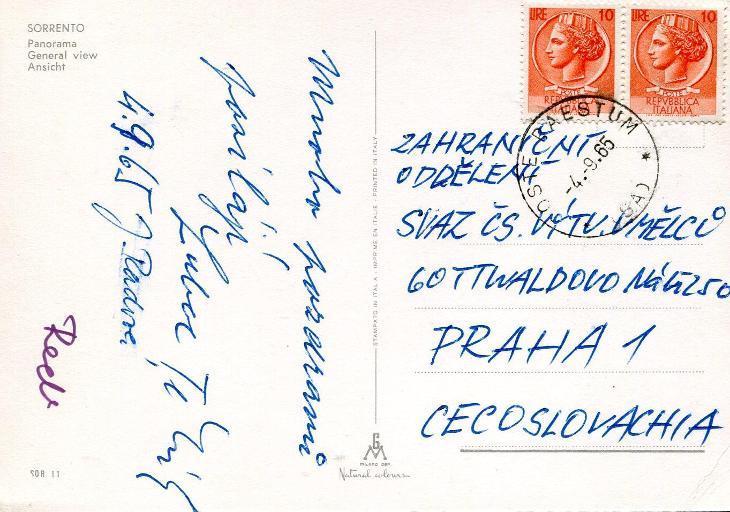 SORRENTO
Panorama
General view
Ansicht
Mnoho pozdravů
posílají
Luboš
4.9.65 J.
SOR 11
STAMPATO IN ITALIA - IMPRIMÉ EN ITALIE - PRINTED IN ITALY
GM
MILANO DEP.
Natural colours
LIRE 10
POSTE
REPVBBLICA
ITALIANA
LIRE 10
POSTE
REPVBBLICA
ITALIANA
POSTE PAESTUM * (SA)
-4.-9.65
ZAHRANIČNÍ
ODDĚLENÍ
SVAZ ČS. VÝTV. UMĚLCŮ
GOTTWALDOVO
PRAHA 1
CECOSLOVACHIA